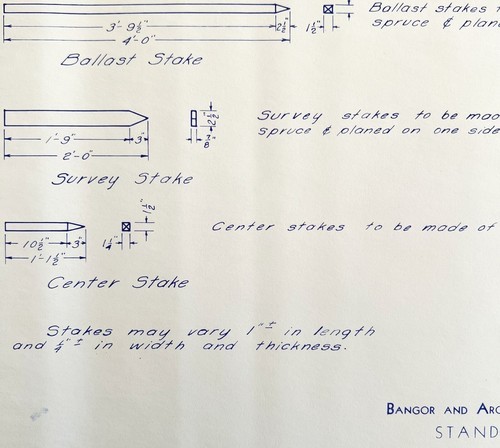 3'-9½" 2½" 1½" Ballast stakes
4'-0" spruce &
Ballast Stake
Survey stakes to be
1'-9" 3" ⅞" 2½" spruce & planed on one side
2'-0"
Survey Stake
10½" 3" 1¼" 1½" Center stakes to be made of
1'-1½"
Center Stake
Stakes may vary 1"± in length
and ¼"± in width and thickness.
BANGOR AND